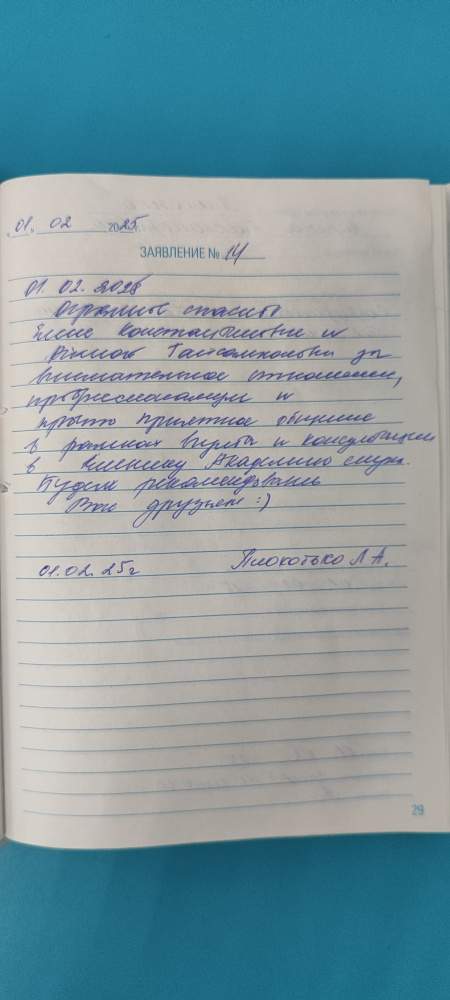 „01" 02 2025
ЗАЯВЛЕНИЕ № 14
01. 02. 2025
Огромное спасибо
Елене Константиновне и
за
внимательное отношение,
профессионализм и
просто приятное общение
в рамках визита и консультации
в клинику Академию слуха.
Будем рекомендовать
Вас друзьям :)
01.02.25г Плокотько Л А.
29